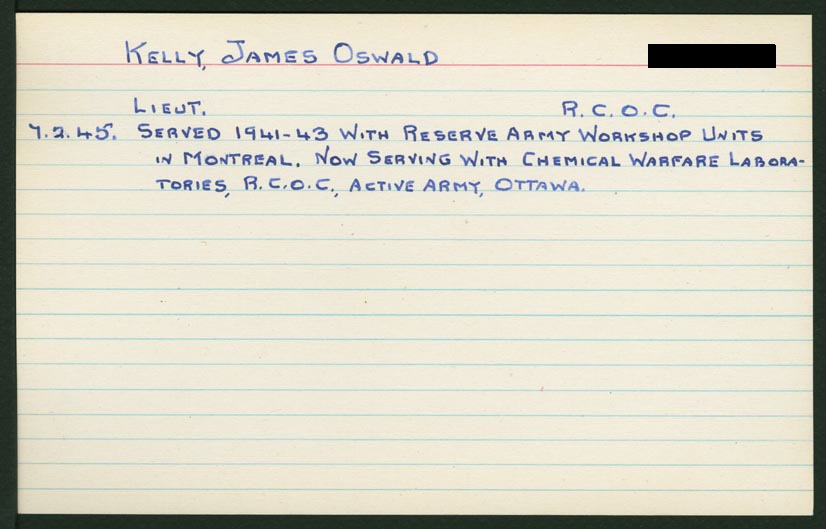 KELLY, JAMES OSWALD
LIEUT. R.C.O.C.
7.2.45. SERVED 1941-43 WITH RESERVE ARMY WORKSHOP UNITS
IN MONTREAL. NOW SERVING WITH CHEMICAL WARFARE LABORA-
TORIES, R.C.O.C., ACTIVE ARMY, OTTAWA.